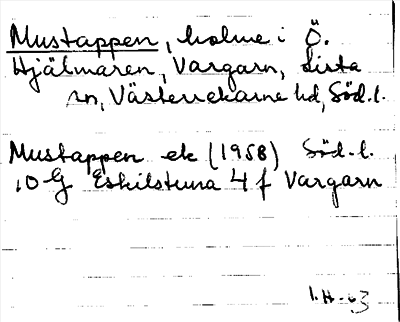 Mustappen, holme i Ö.
Hjälmaren, Vargarn, Lista
sn, Västerrekarne hd, Söd. l.
Mustappen ek (1958) Söd. l.
10 G Eskilstuna 4 f Vargarn
I.H-63